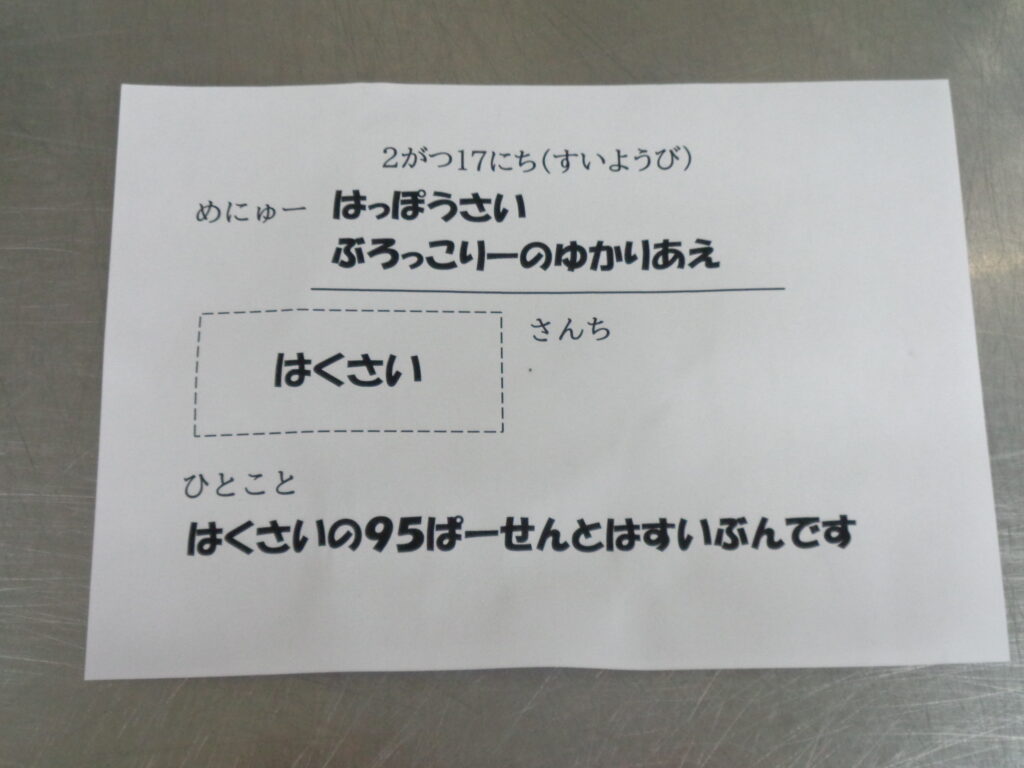 2がつ17にち(すいようび)
めにゅー はっぽうさい
ぶろっこりーのゆかりあえ
はくさい
さんち
ひとこと
はくさいの95ぱーせんとはすいぶんです